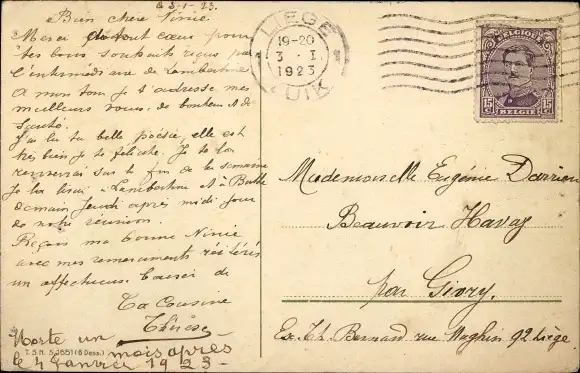 le 3-1-23.
Bien chère Ninie
Merci de tout cœur pour
tes bons souhaits reçus par
l'intermédiaire de Lambertine
A mon tour je t'adresse mes
meilleurs vœux de bonheur & de
Santé.
J'ai lu ta belle poésie, elle est
très bien je te félicite. Je te la
renverrai sur la fin de la semaine
Je la lirai à Lambertine & à Berthe
demain Jeudi après midi jour
de notre réunion
Reçois ma bonne Ninie
avec mes remerciements réitérés
un affectueux baiser de
Ta Cousine
Thérèse
Morte un mois après
le 4 Janvier 1923-
T. S. N. S. 1651 (6 Dess.)
LIEGE
19-20
3 - I.
1923
LUIK
BELGIQUE
15 C 15 C
BELGIË
Mademoiselle Eugénie Darrion
Beauvoir Havay
par Givry.
Ex. Th. Bernard rue Maghin 92 Liège.